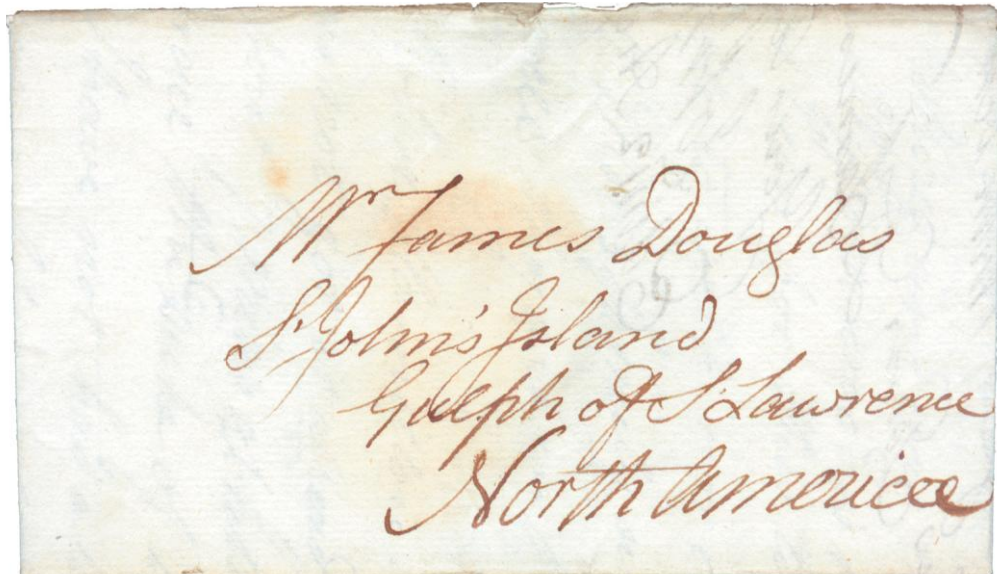 Mr James Douglas
St John's Island
Gulph of St Lawrence
North America